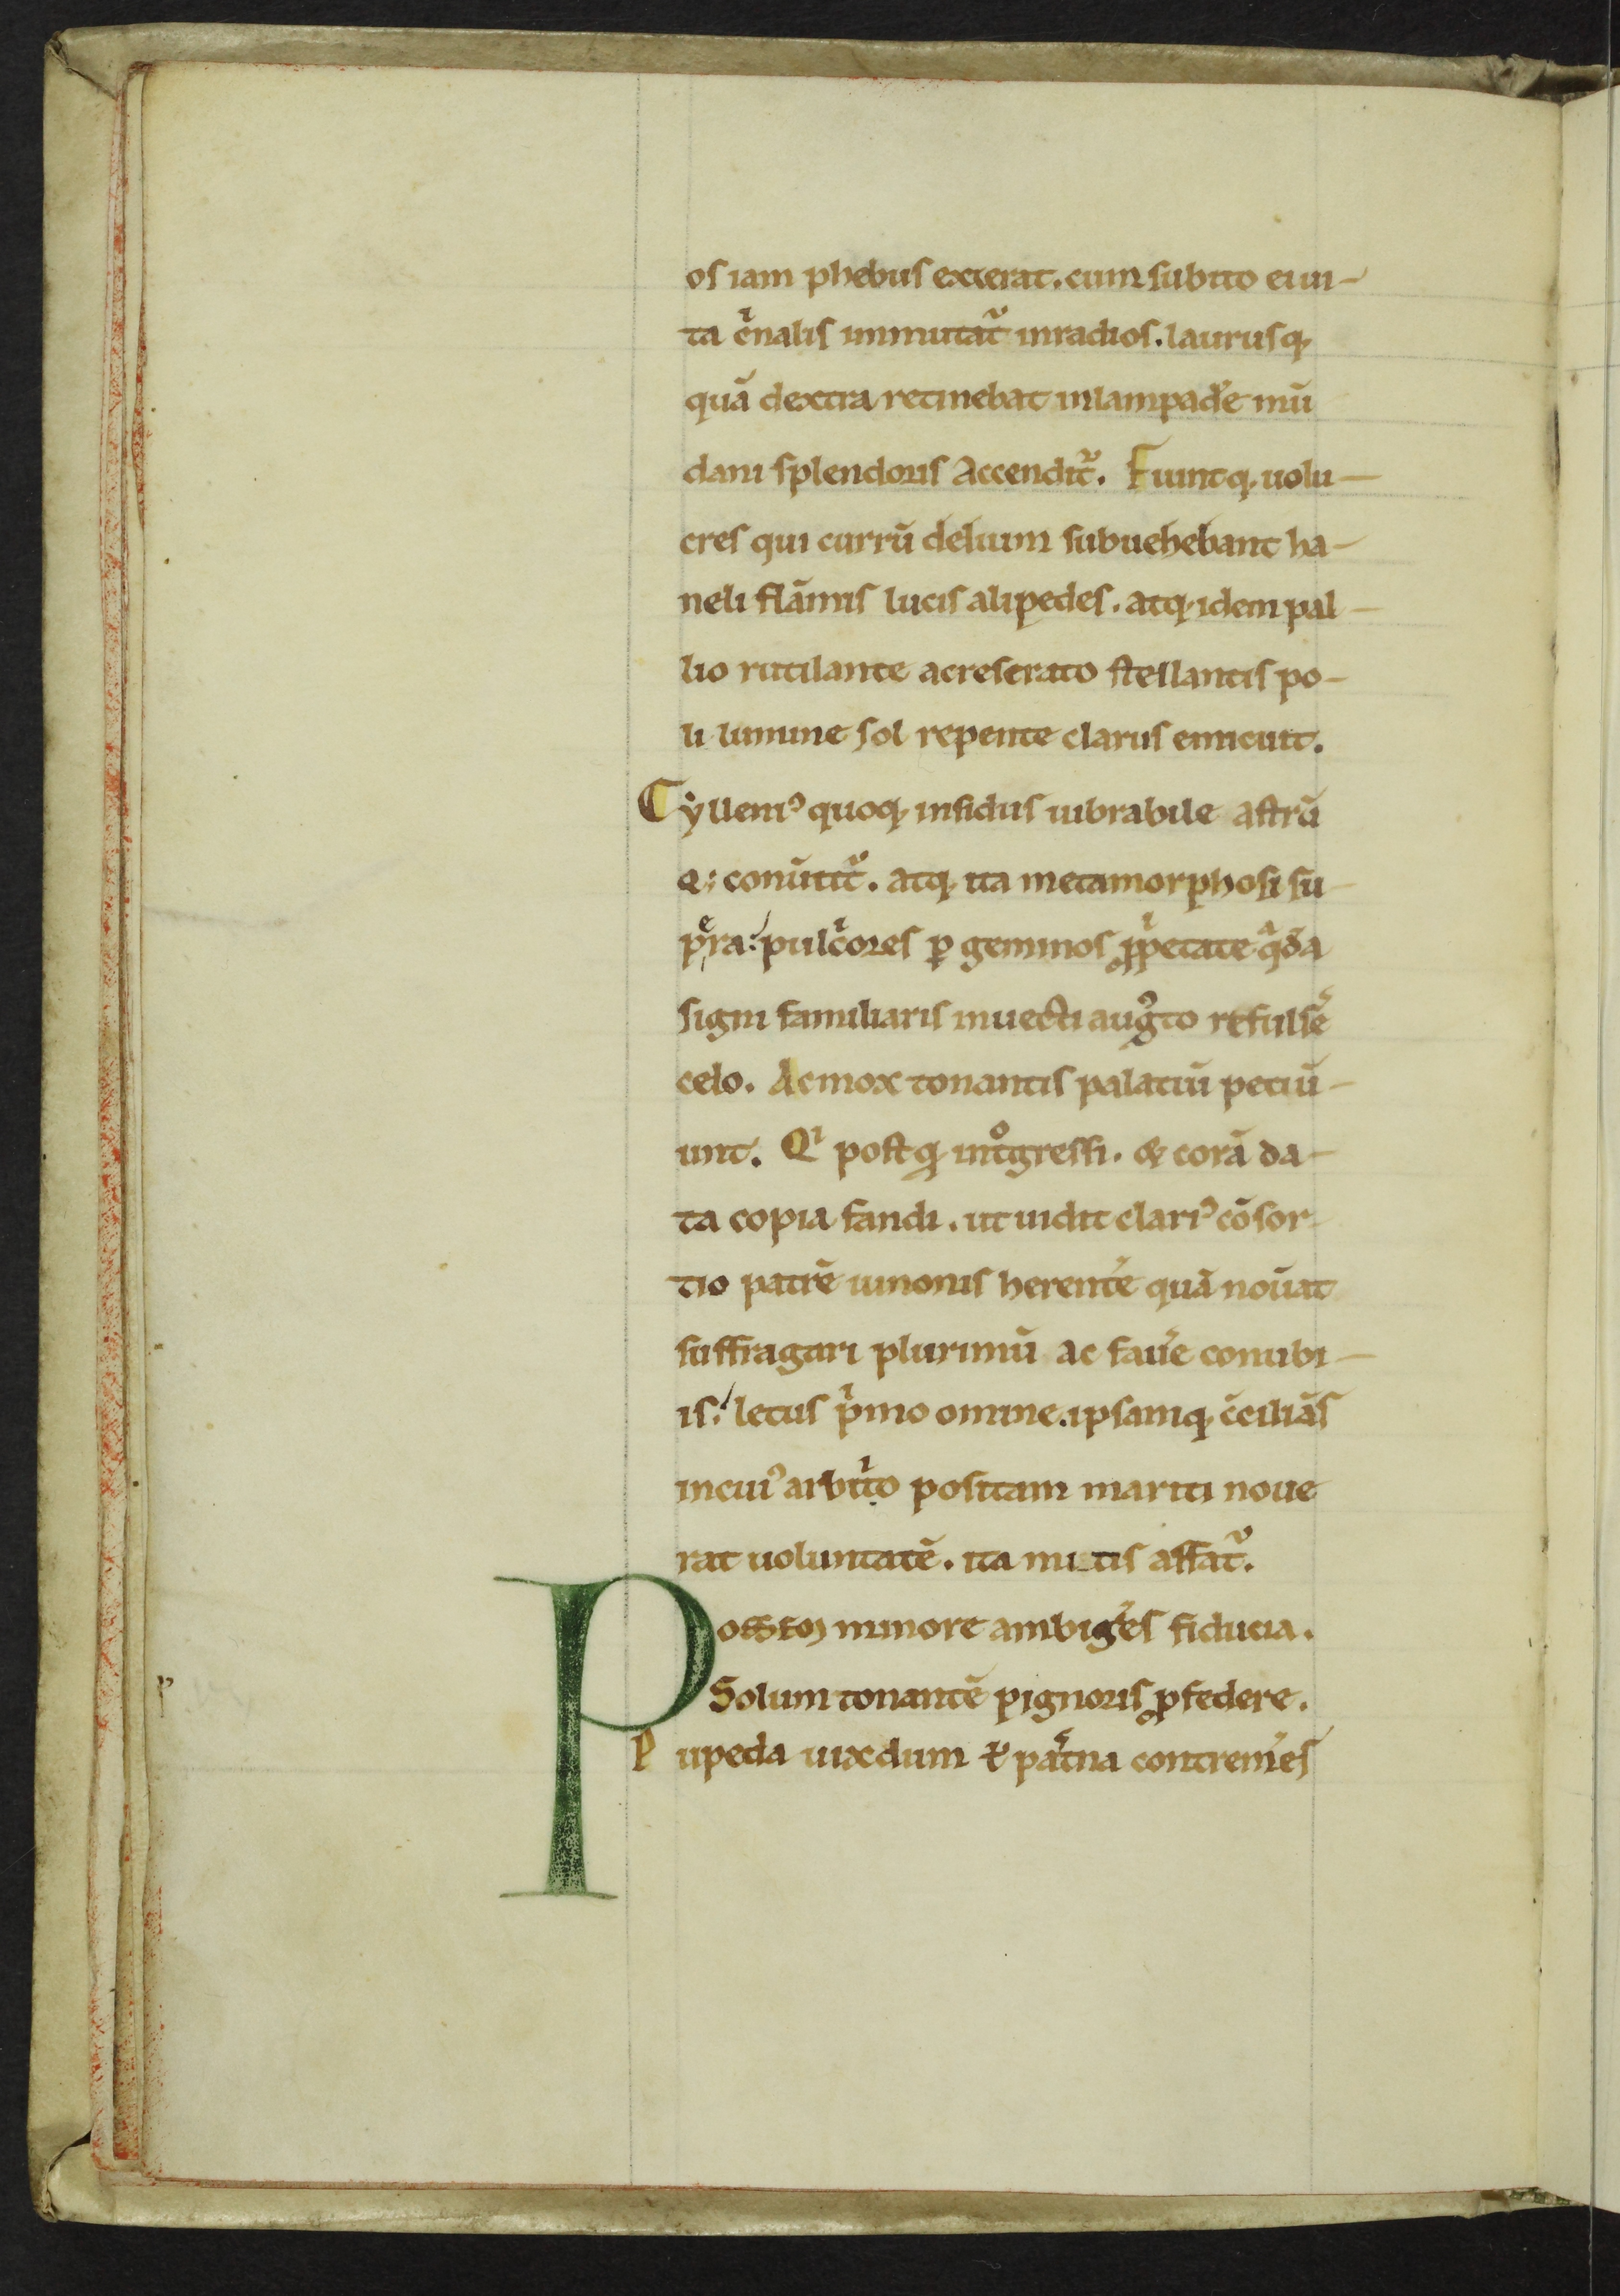 os iam phebus exierat. cum subito ei ui-
ta cͥnalis immutat᷑ inradios. laurusq;
quā dextra retinebat inlampadē mū
dani splendoris Accendit᷑. Fiuntq; uolu-
cres qui currū delium subuehebant ha-
neli flāmis lucis alipedes. atq; idem pal-
lio rutilante acreserato stellantis po-
li limine sol repente clarus emicuit.
Cylleniꝰ quoq; insidus uibrabile astrū
q; conūtit᷑. atq; ita metamorphosi su-
pͤra: pulcͥores ꝑ geminos ꝓpͥetate qͣda
signi familiaris inuecti augꝰto refulsē
celo. Ac mox tonantis palatiū petiū-
unt. Qͥ postq; intͦgressi. & corā da-
ta copia fandi. ut uidit clariꝰ cōsor-
tio patrē iunonis herentē quā nouat̄
suffragari plurimū ac fauē conubi-
is: letus pͥmo omine. ipsamq; c̄ciliās
incuiꝰ arbitͥo positam mariti noue
rat uoluntatē. ita mitis affat᷑.
Possem minore ambigēs fiducia.
Solum tonantē pignoris ꝓ federe.
P upeda uixdum & patͤna contremēs